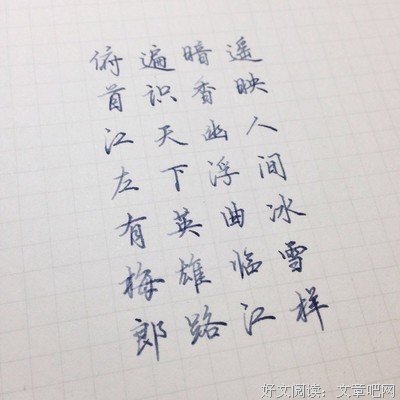 遥映人间冰雪样
暗香幽浮曲临江
遍识天下英雄路
俯首江左有梅郎
好文阅读：文章吧网